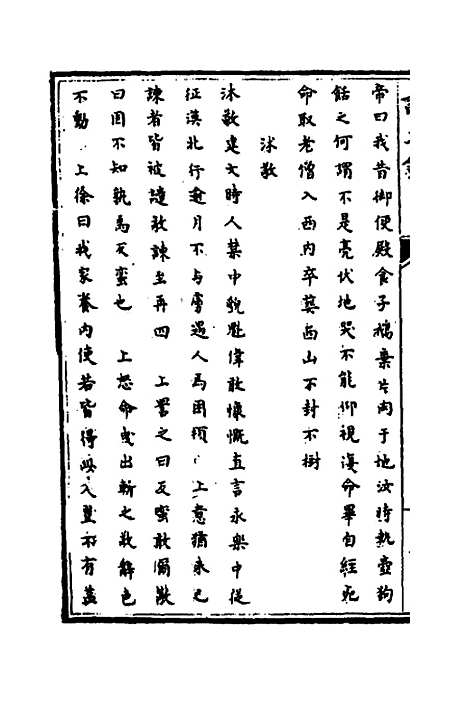 帝曰我昔御便殿食子鵝棄片肉于地汝時執壺狗
餂之何謂不是亮伏地哭不能仰視復命畢自經死
命取老僧入西內卒葬西山不封不樹
沐敬
沐敬建文時人禁中貌魁偉敢慷慨直言永樂中從
征漠北行逾月不與虜遇人馬困頓上意猶未已
諫者皆被譴敬諫至再四　上詈之曰反蠻敢爾敬
曰固不知孰為反蠻也　上怒命曳出斬之敬解色
不動　上徐曰我家養內使若皆得此人豈不有益